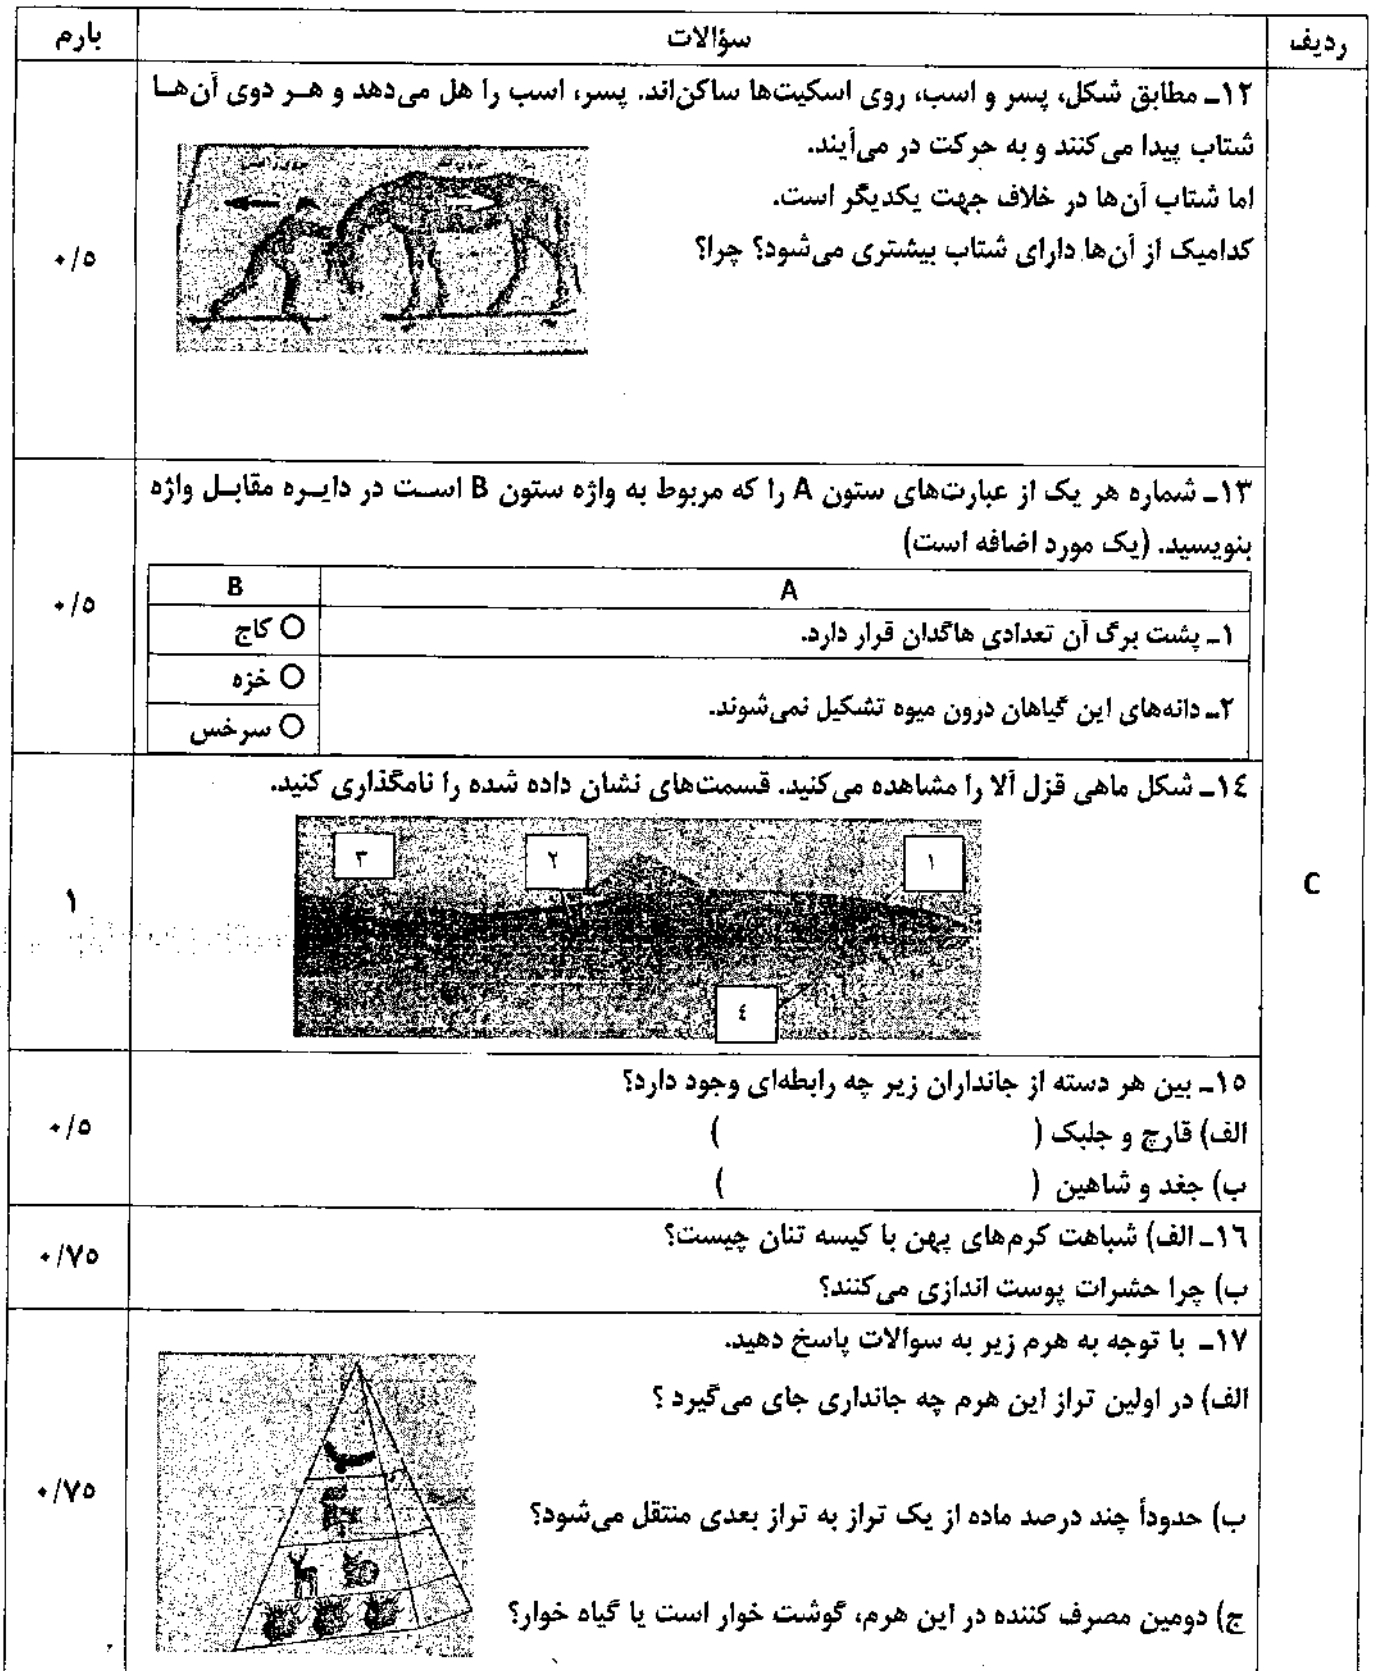 ردیف سؤالات بارم
۱۲ـ مطابق شکل، پسر و اسب، روی اسکیت‌ها ساکن‌اند. پسر، اسب را هل می‌دهد و هـر دوی آن‌هـا
شتاب پیدا می‌کنند و به حرکت در می‌آیند.
اما شتاب آن‌ها در خلاف جهت یکدیگر است.
کدامیک از آن‌ها دارای شتاب بیشتری می‌شود؟ چرا؟
۰/۵
۱۳ـ شماره هر یک از عبارت‌های ستون A را که مربوط به واژه ستون B اسـت در دایـره مقابـل واژه
بنویسید. (یک مورد اضافه است)
۰/۵
A B
۱ـ پشت برگ آن تعدادی هاگدان قرار دارد.
کاج
خزه
۲ـ دانه‌های این گیاهان درون میوه تشکیل نمی‌شوند.
سرخس
۱۴ـ شکل ماهی قزل آلا را مشاهده می‌کنید. قسمت‌های نشان داده شده را نامگذاری کنید.
۱
۲
۳
۴
C
۱
۱۵ـ بین هر دسته از جانداران زیر چه رابطه‌ای وجود دارد؟
الف) قارچ و جلبک ( )
ب) جغد و شاهین ( )
۰/۵
۱۶ـ الف) شباهت کرم‌های پهن با کیسه تنان چیست؟
ب) چرا حشرات پوست اندازی می‌کنند؟
۰/۷۵
۱۷ـ با توجه به هرم زیر به سوالات پاسخ دهید.
الف) در اولین تراز این هرم چه جانداری جای می‌گیرد ؟
ب) حدوداً چند درصد ماده از یک تراز به تراز بعدی منتقل می‌شود؟
ج) دومین مصرف کننده در این هرم، گوشت خوار است یا گیاه خوار؟
۰/۷۵